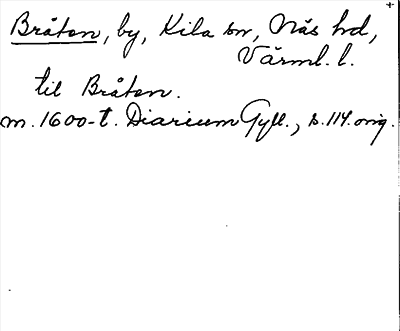 Bråten, by, Kila sn, Näs hd,
Värml. l.
til Bråten.
m. 1600-t. Diarium Gyll., s. 114. orig.